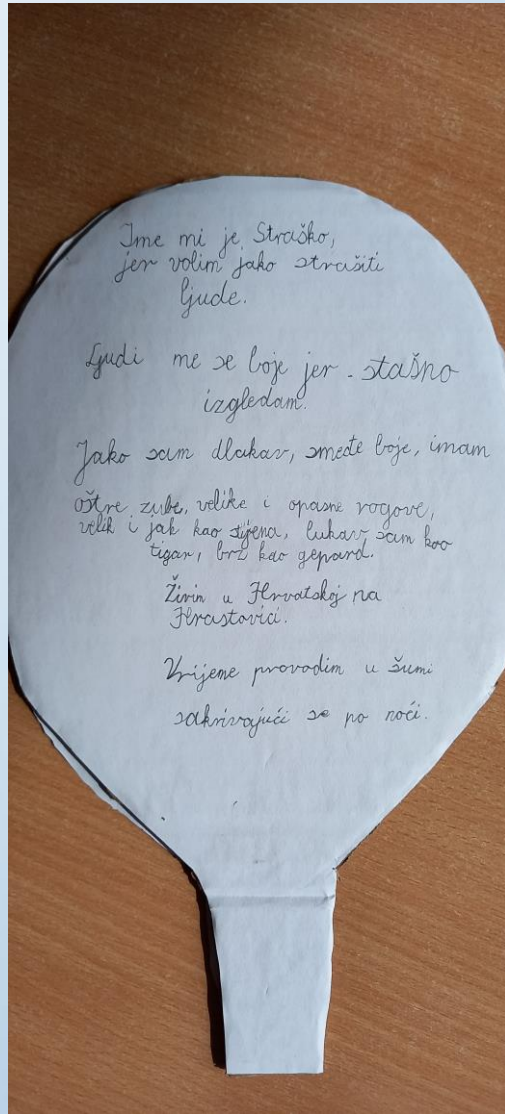 Ime mi je Straško,
jer volim jako strašiti
ljude.
Ljudi me se boje jer stašno
izgledam.
Jako sam dlakav, smeđe boje, imam
oštre zube, velike i opasne rogove,
velik i jak kao stijena, lukav sam kao
tigar, brz kao gepard.
Živin u Hrvatskoj na
Hrastovici.
Vrijeme provodim u šumi
sakrivajući se po noći.